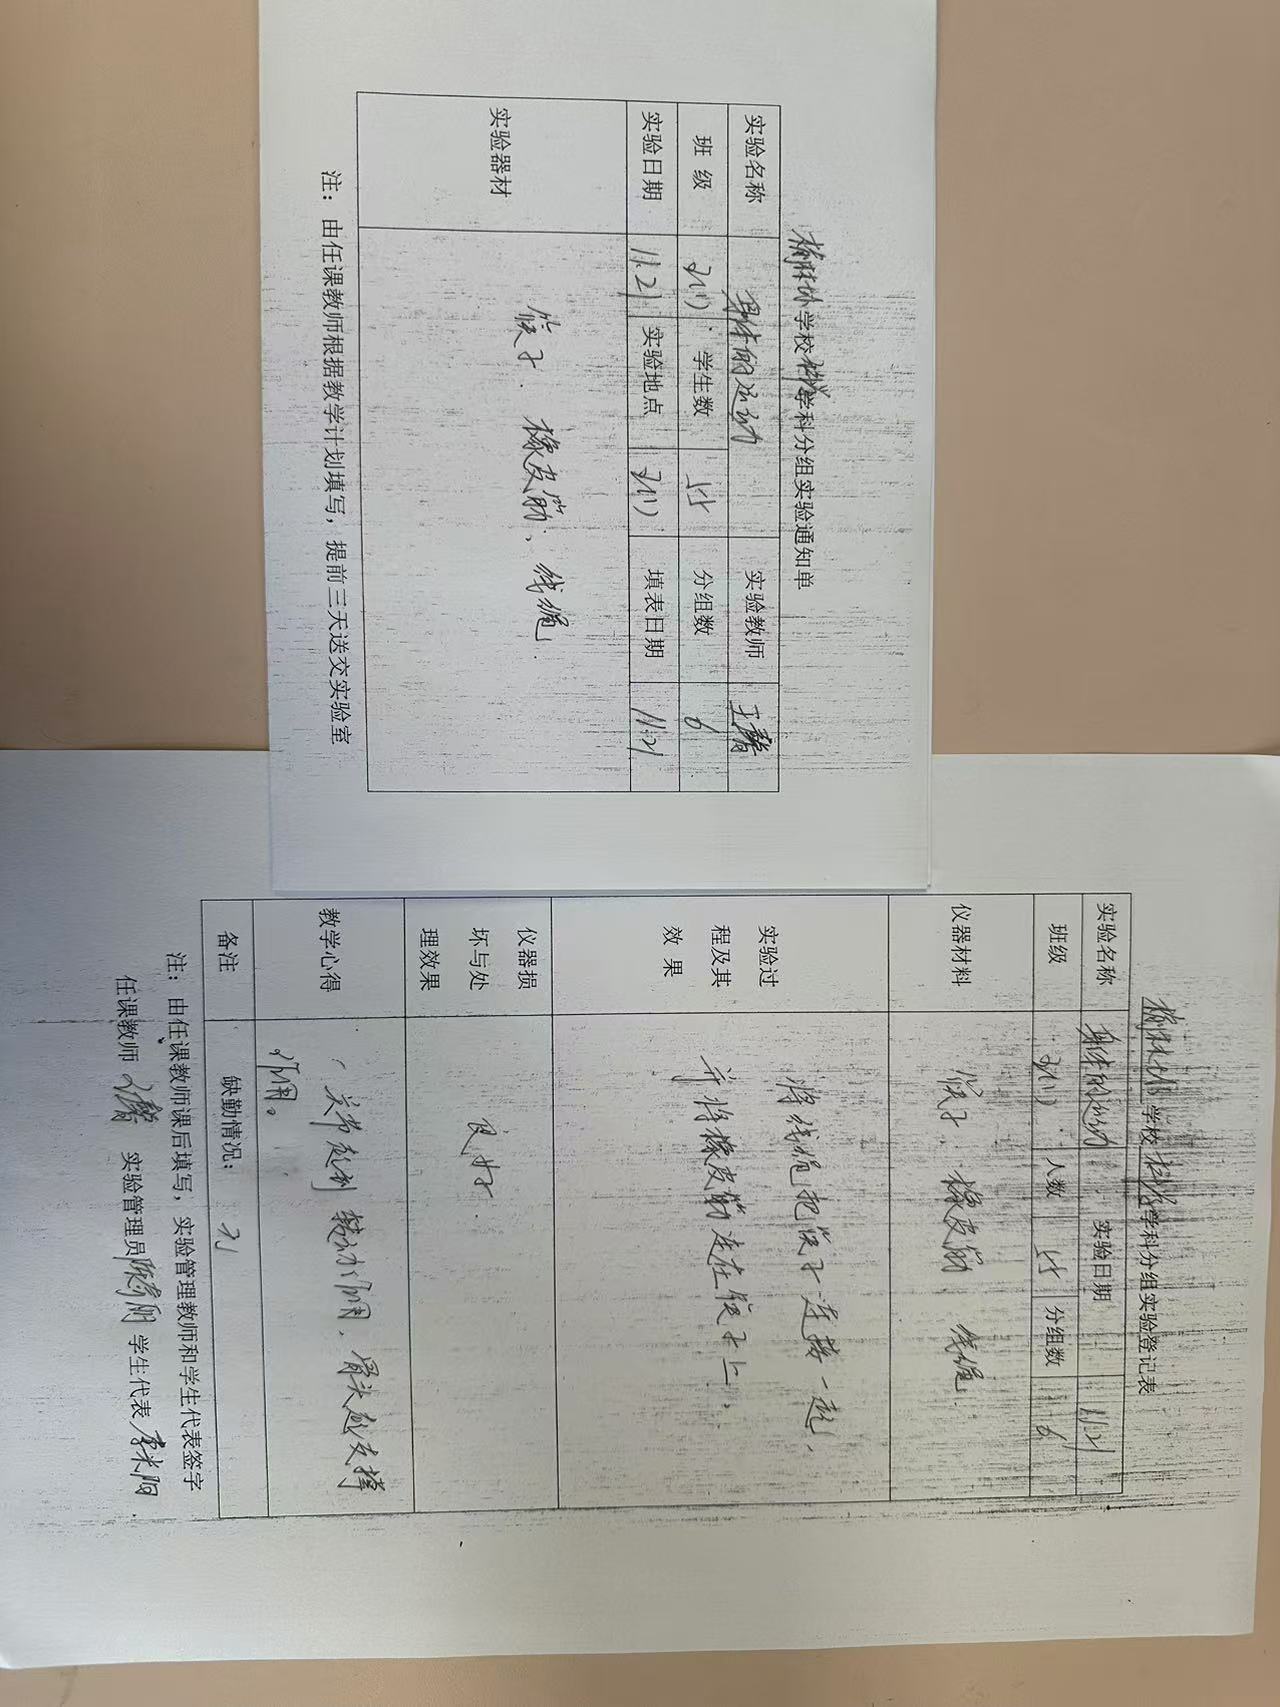 学校科学学科分组实验通知单
实验名称 身体的运动 实验教师
班 级 三(1) 学生数 55 分组数 6
实验日期 11.21 实验地点 三(1) 填表日期 11.21
实验器材 筷子、橡皮筋、线绳
注：由任课教师根据教学计划填写，提前三天送交实验室
学校科学学科分组实验登记表
实验名称 身体的运动 实验日期 11.21
班级 三(1) 人数 55 分组数 6
仪器材料 筷子、橡皮筋 线绳
实验过
程及其
效 果
将线绳把筷子连接一起，
并将橡皮筋连在筷子上。
仪器损
坏与处
理效果
良好
教学心得
关节起到转动作用，骨头起支撑
作用。
备注 缺勤情况：
注：由任课教师课后填写，实验管理教师和学生代表签字
任课教师 实验管理员 学生代表